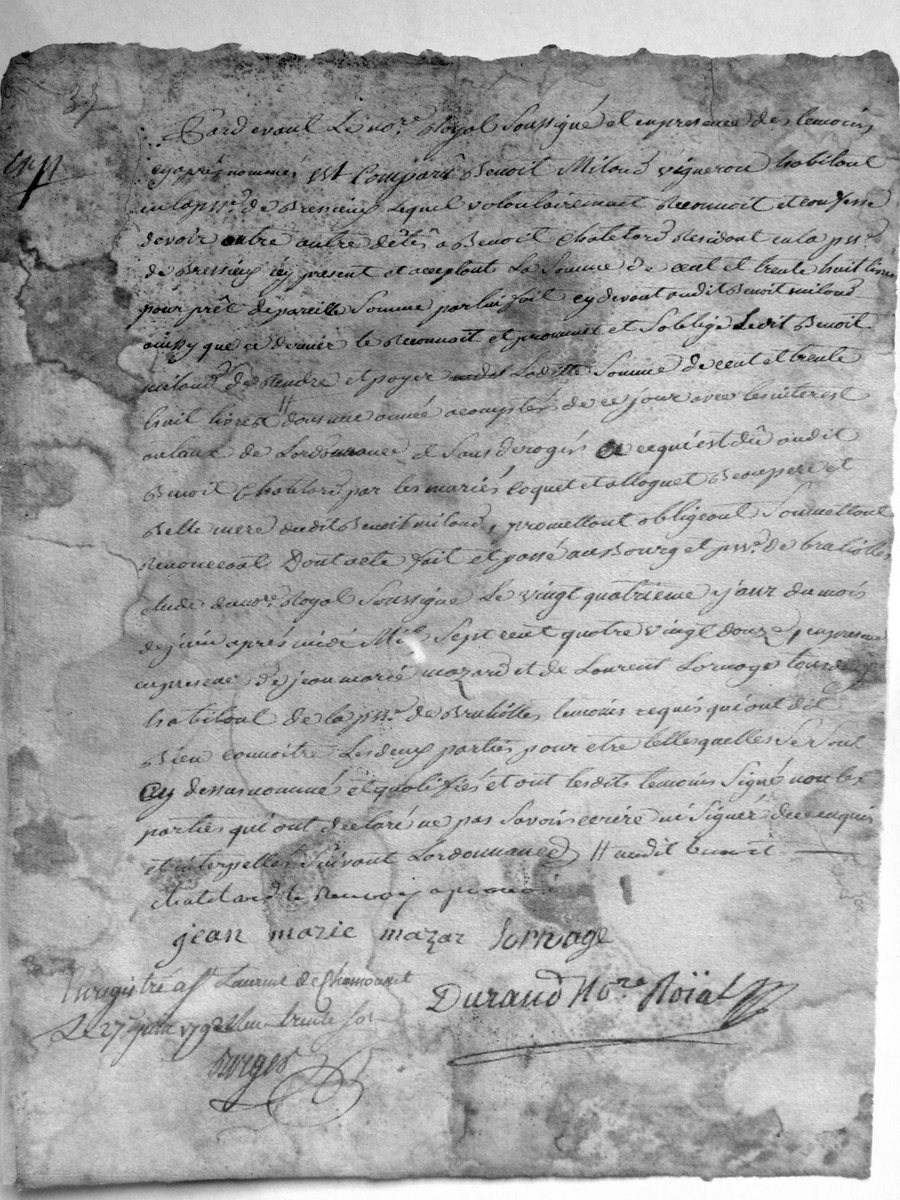 Pardevant Le no.re Royal Soussigné et en presence des temoins
cy après nommés est Comparû Benoit Miland vigneron habitant
en la p.sse de Bressieux Lequel volontairement Reconnoit et confesse
devoir outre autre dêtes à Benoit Chatelard Residant en la p.sse
de Bressieux icy present et acceptant La Somme de cent et trente huit livres
pour prêt de pareille Somme par lui fait cy devant audit Benoit miland
ainsy que ce dernier le Reconnoit et prommet et Soblige Ledit Benoit
miland de Rendre et payer Laditte Somme de cent et trente
huit livres # dans une année a compter de ce jour avec les interest
au taux de Lordonnance et Sans deroger a ce qui est dû audit
Benoit Chatelard par les mariés Coquet et Beaupere et
Belle mere dudit Benoit miland, promettant obligeant Soumettant
Renonceant Dont acte fait et passé au Bourg et p.sse de
étude du no.re Royal Soussigné Le vingt quatrieme jour du mois
de juin après midi Mil Sept cent quatre vingt douze
en presence de jean marie mazard et de Laurent Lornage tous deux
habitant de la p.sse de temoins requis qui ont dit
Bien connoitre Les deux parties pour etre telles quelles Se Sont
cy dessus nommé et qualiffiés et ont lesdits temoins Signé non les
parties qui ont declaré ne pas Savoir ecrire ni Signer de ce enquis
et interpellés Suivant Lordonnance # audit benoit
chatelard le Renvoy aprouvé
jean marie mazar Lornage
Enregistré a St Laurent de Chamousset
Durand No.re Roïal
Le 27 juin 1792 trente sols